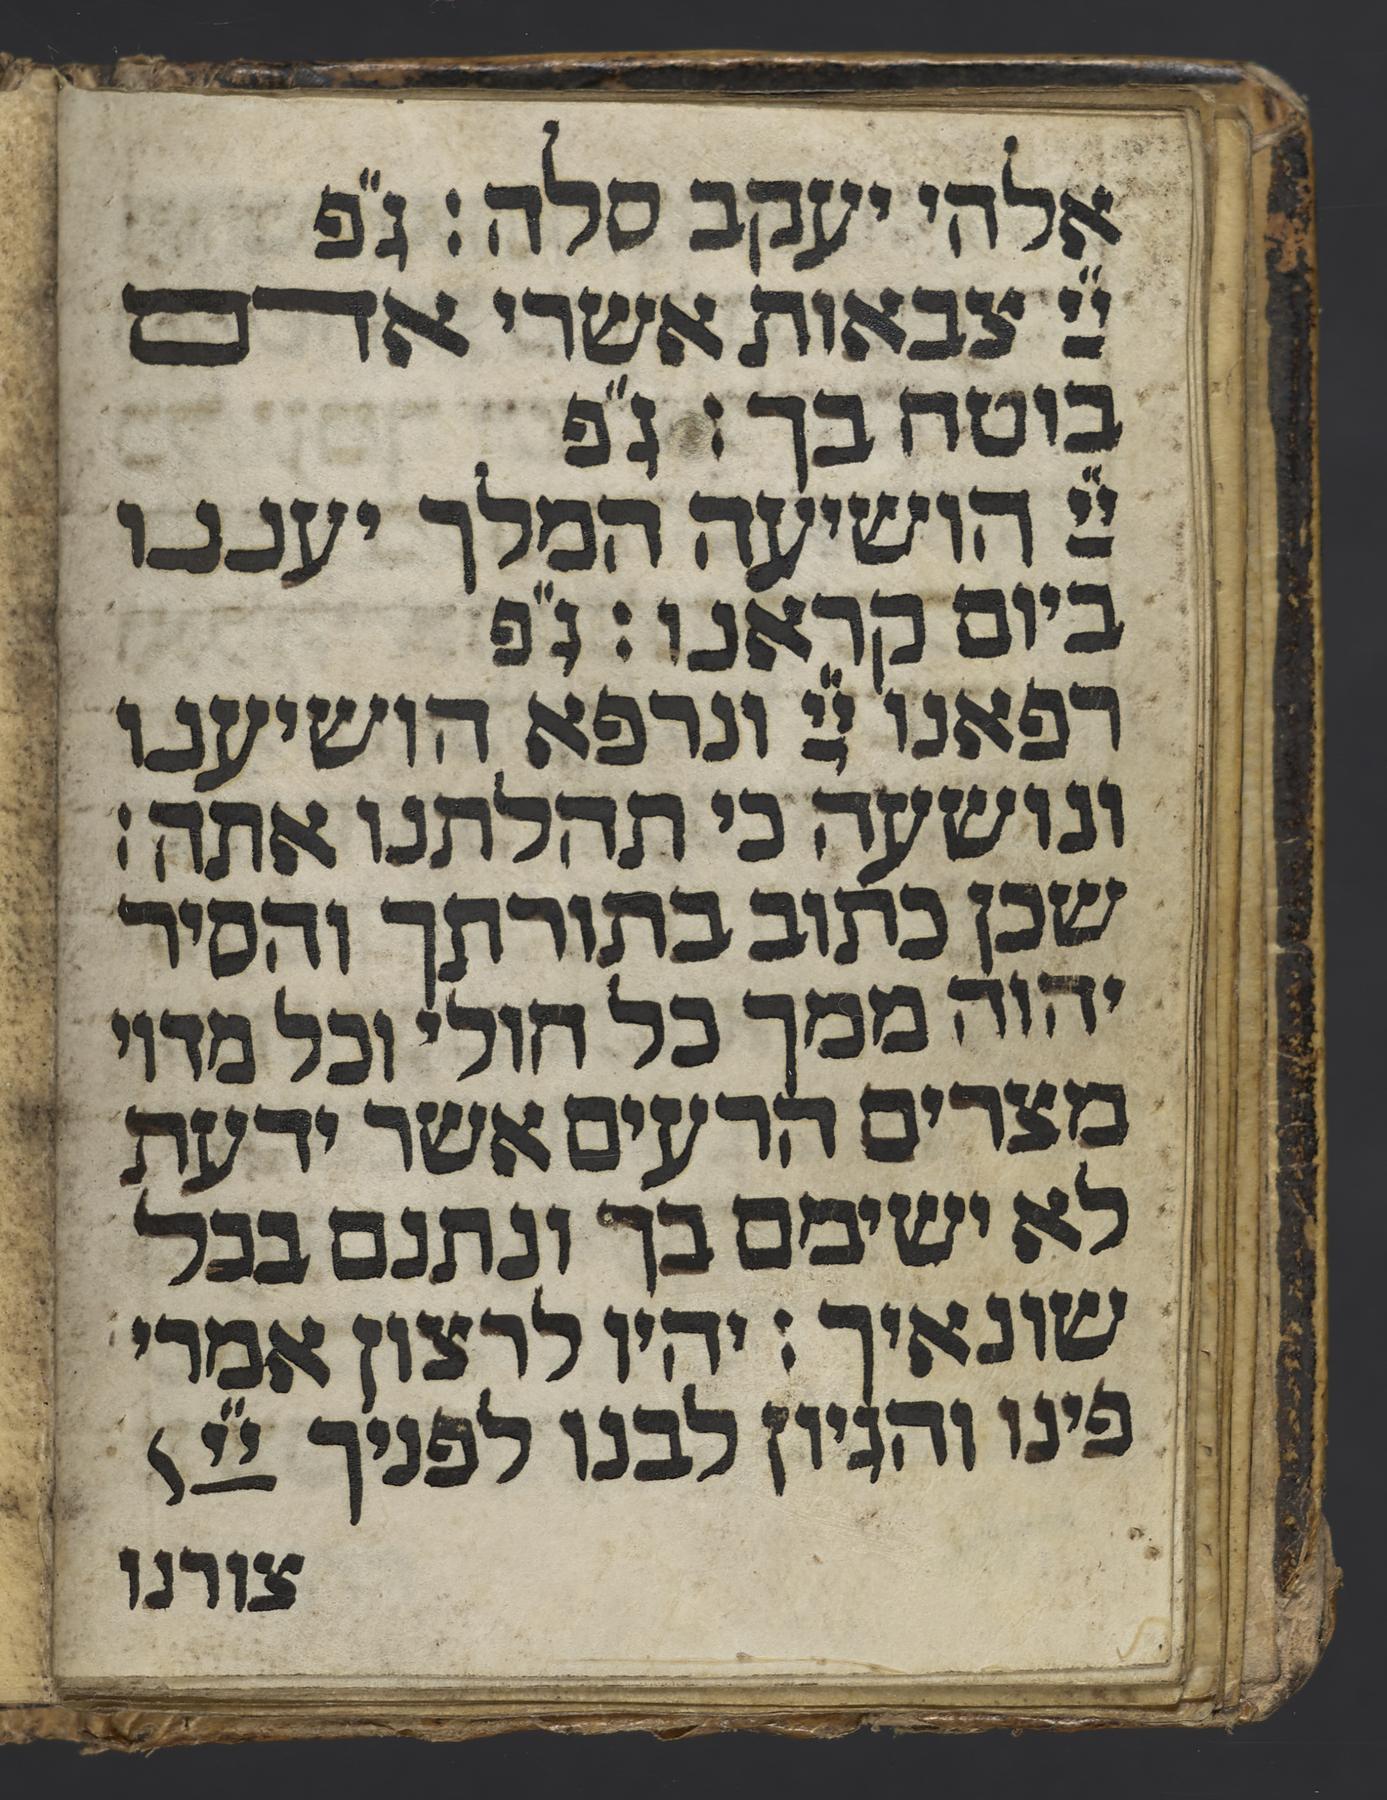 אלהי יעקב סלה : ג"פ
י"י צבאות אשרי אדם
בוטח בך : ג"פ
י"י הושיעה המלך יעננו
ביום קראנו : ג"פ
רפאנו י"י ונרפא הושיענו
ונושעה כי תהלתנו אתה :
שכן כתוב בתורתך והסיר
יהוה ממך כל חולי וכל מדוי
מצרים הרעים אשר ידעת
לא ישימם בך ונתנם בכל
שונאיך : יהיו לרצון אמרי
פינו והגיון לבנו לפניך י"י
צורנו